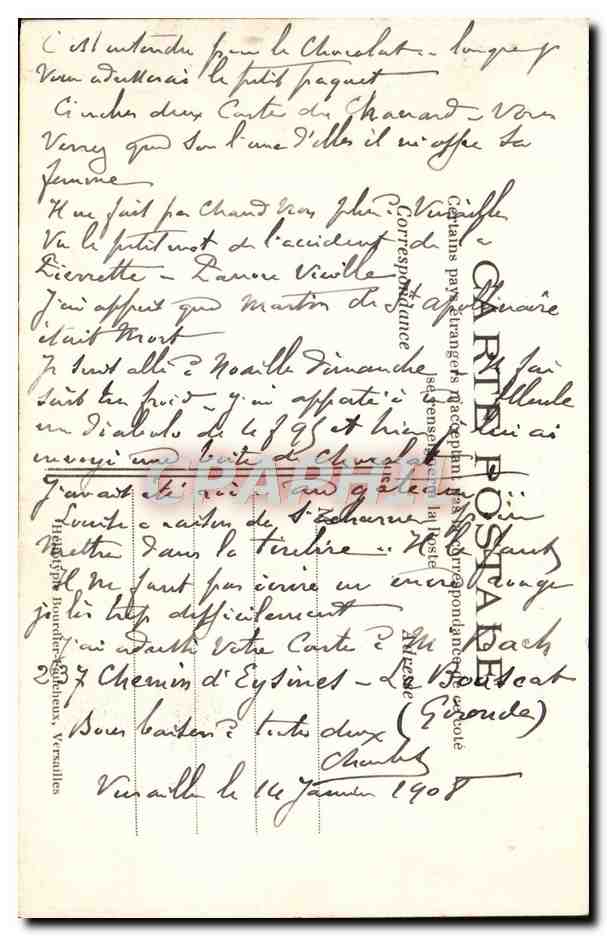 C'est entendu pour le Chocolat
Vous adresserai le petit paquet
Ci inclus deux Cartes de Vous
Verrez que sur l'une d'elles il m'offre sa
femme
Il ne fait pas chaud non plus à Versailles
Vu le petit mot de l'accident de la
Pierrette - Pauvre Vieille
J'ai appris que Martin de St apolinaire
était mort
Je suis allé à Noaille dimanche - Il fai
sait un froid - y'ai apporté à
un diabolo de 4f 95 et hier lui ai
envoyé une boite de Chocolat
J'avais été au gâteau
Louise a raison de
Mettre dans la tirelire - Il
Il ne faut pas écrire en encre rouge
je lis trop difficilement
J'ai adressé Votre Carte à M Bach
237 Chemin d'Eysines - Le Bouscat
(Gironde)
Bons baisers à toutes deux
Charles
Versailles le 14 Janvier 1908
CARTE POSTALE
Certains pays étrangers n'acceptant pas la correspondance de ce côté
se renseigner à la Poste
Correspondance
Adresse
Héliotypie Bourdier-Faucheux, Versailles
CPAPHIL